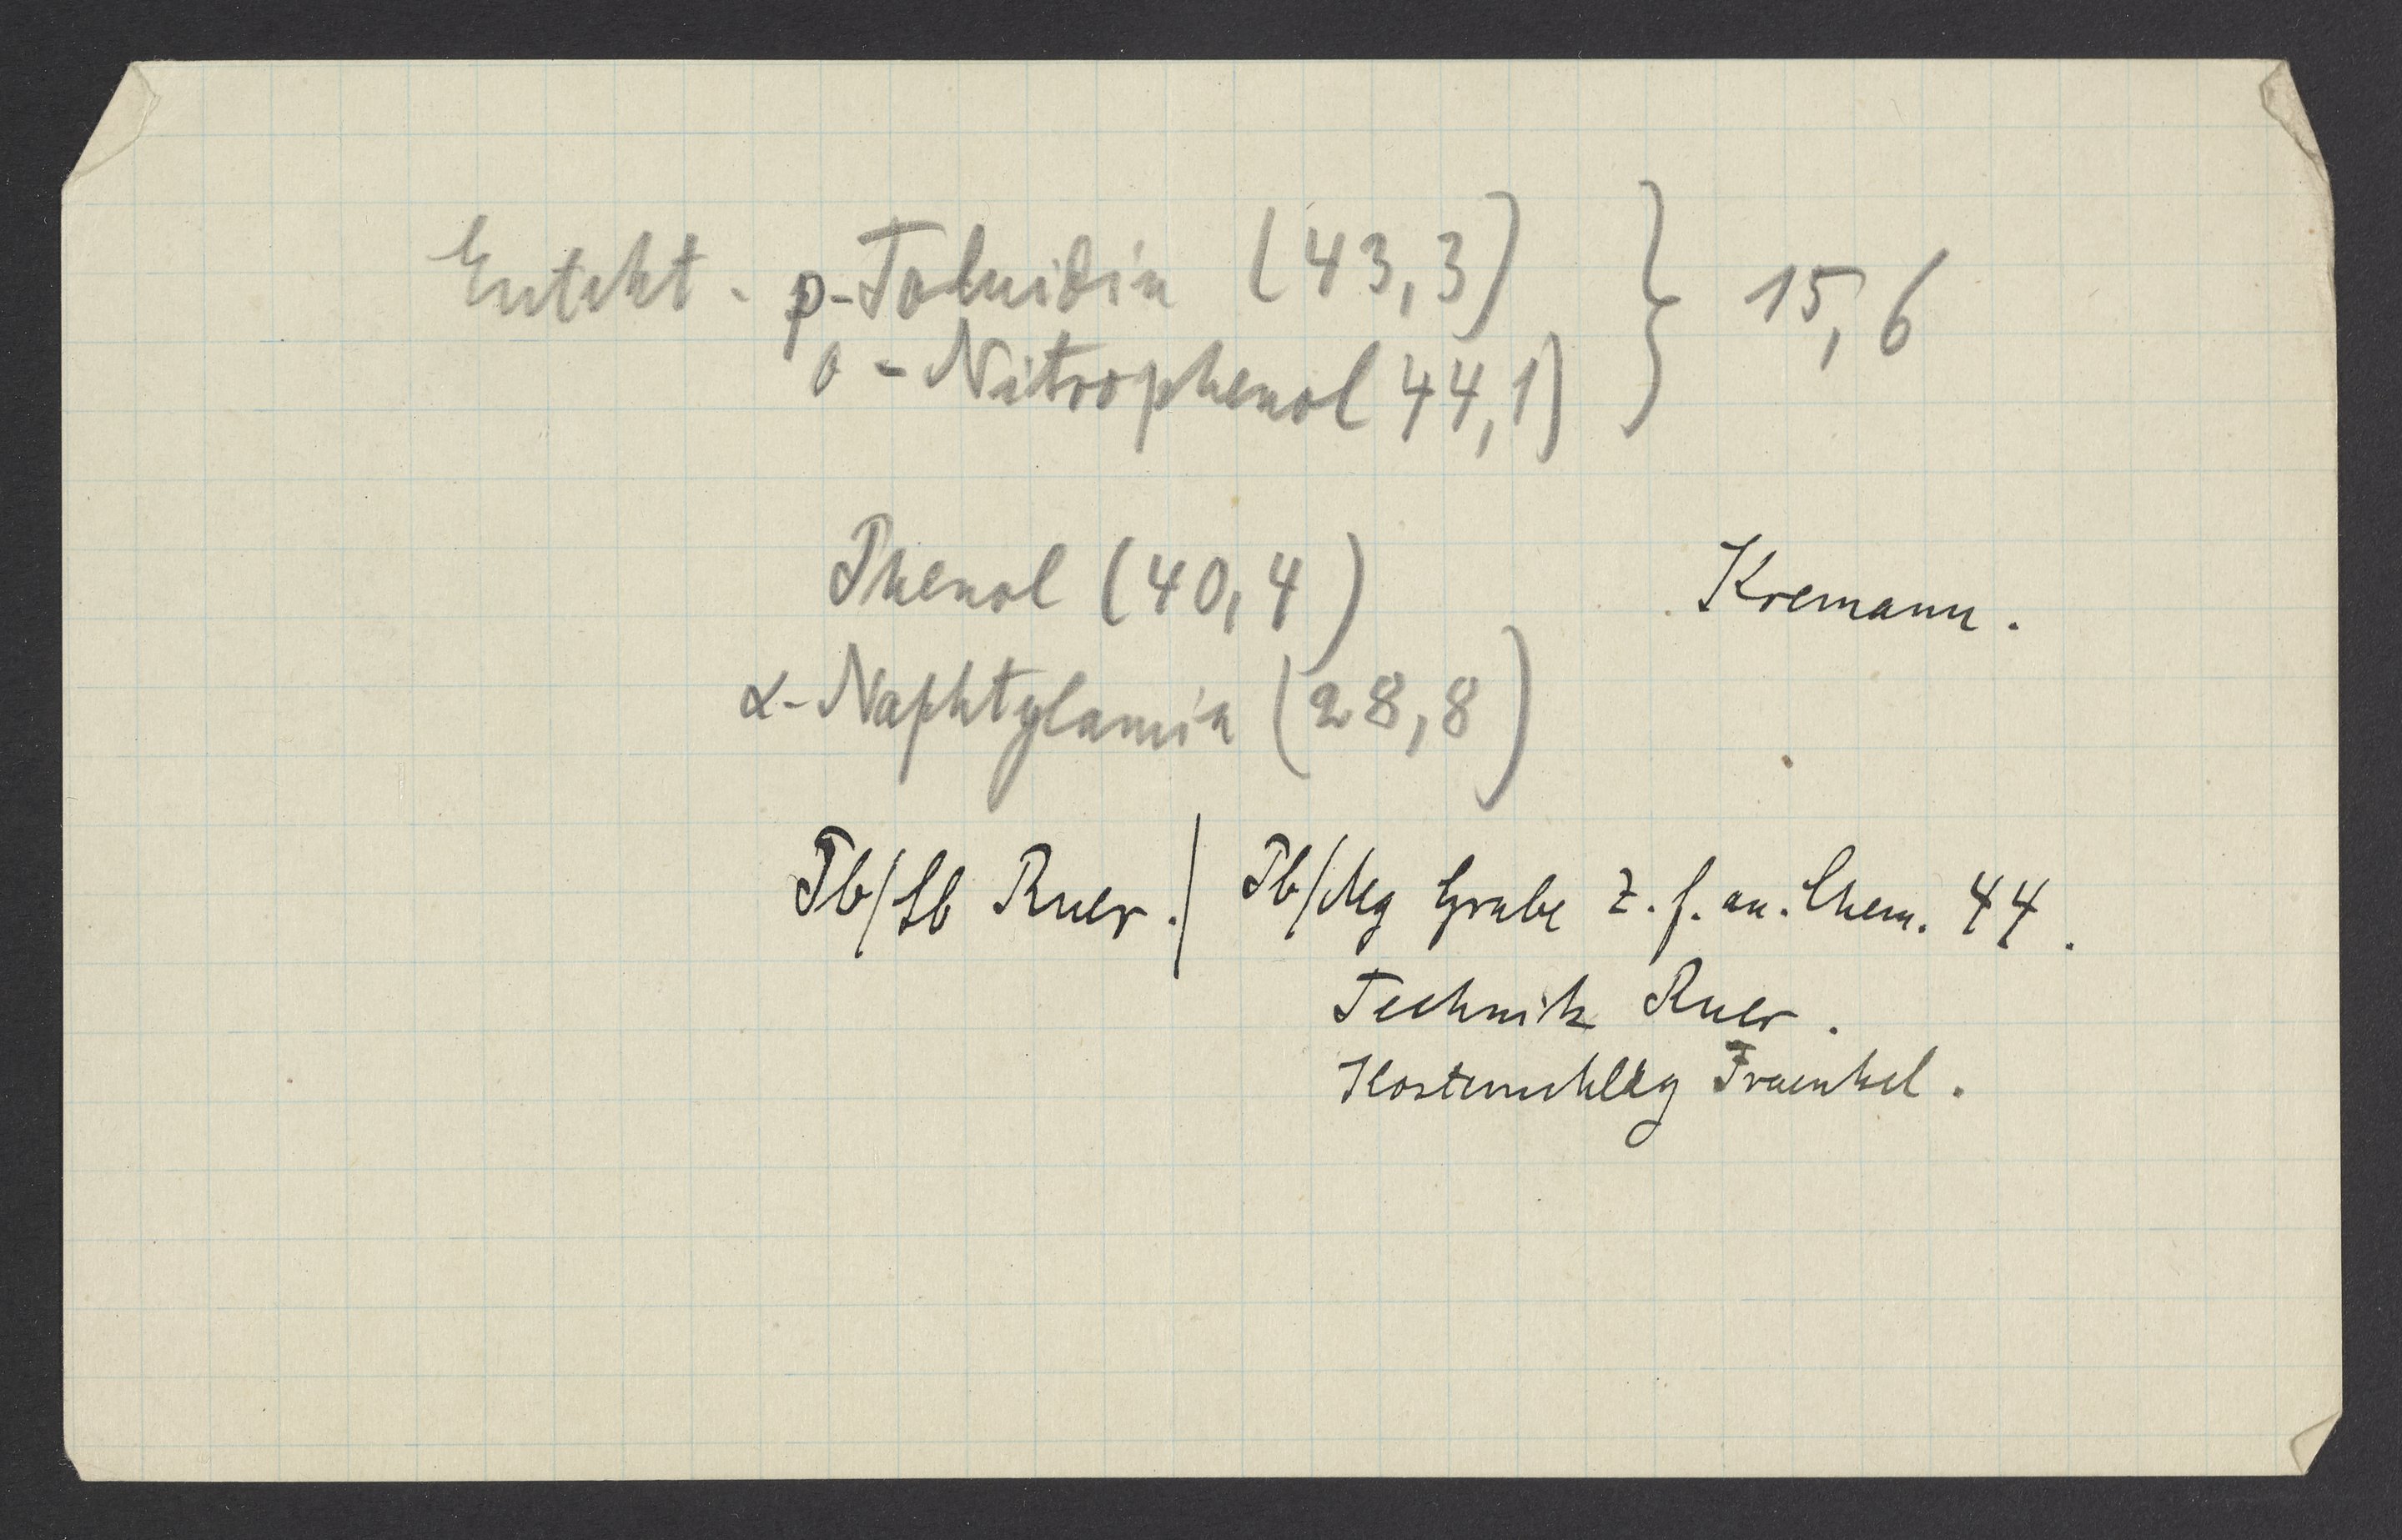 Eutekt. p-Toluidin (43,3) } 15,6
o-Nitrophenol 44,1)
Phenol (40,4)
Kremann.
α-Naphtylamin (28,8)
Pb/Sb Ruer. / Pb/Mg Grube Z. f. an. Chem. 44.
Technik Ruer.
Fraenkel.